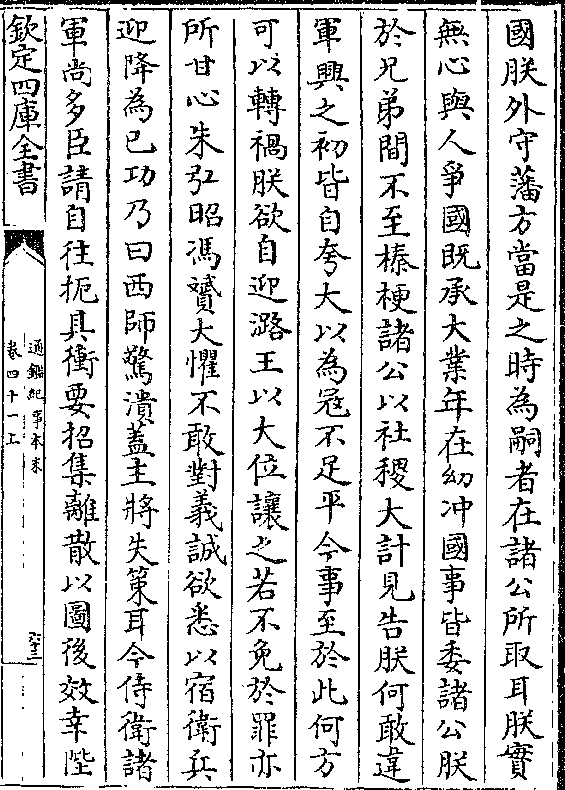 國朕外守藩方當是之時為嗣者在諸公所取耳朕實
無心與人爭國既承大業年在幼冲國事皆委諸公朕
於兄弟間不至榛梗諸公以社稷大計見告朕何敢違
軍興之初皆自夸大以為寇不足平今事至於此何方
可以轉禍朕欲自迎潞王以大位讓之若不免於罪亦
所甘心朱弘昭馮贇大懼不敢對義誠欲悉以宿衛兵
迎降為已功乃曰西師驚潰葢主將失策耳今侍衛諸
軍尚多臣請自往扼其衝要招集離散以圖後效幸陛
欽定四庫全書
通鑑紀事本末
卷四十一上
六十三